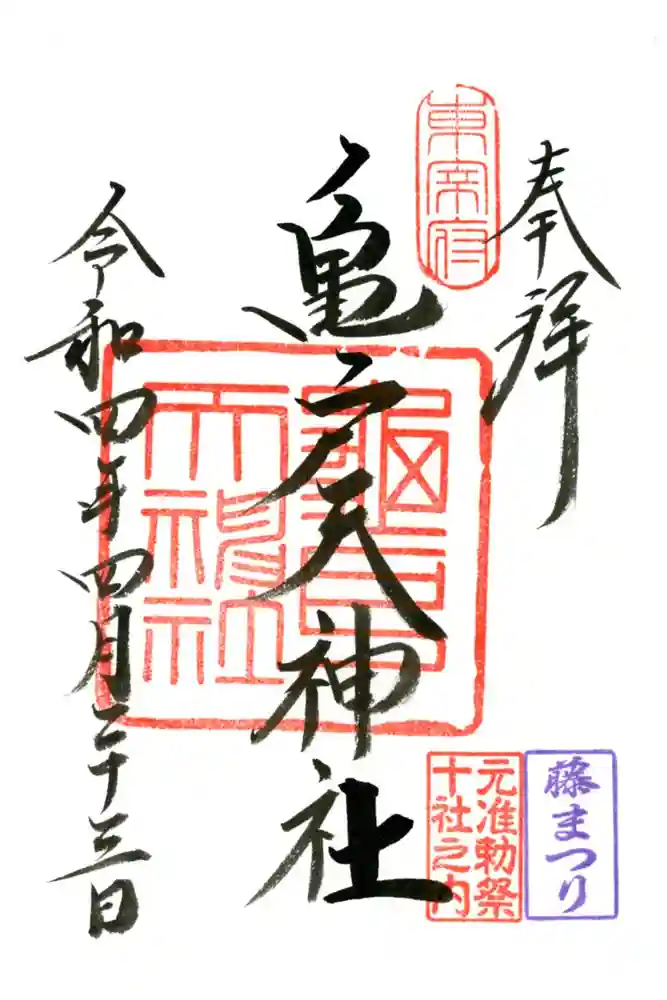 奉拝
東宰府
亀戸天神社
亀戸
天神社
令和四年四月二十三日
藤まつり
元准勅祭
十社之内